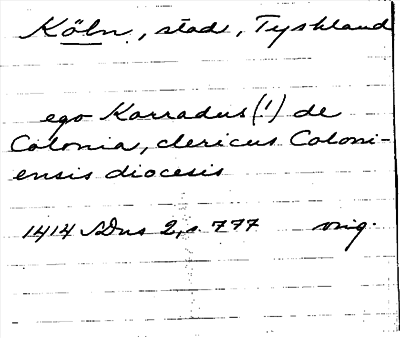 Köln, stad, Tyskland
ego Korradus (!) de
Colonia, clericus Coloni-
ensis diocesis
1414 SDns 2, s. 777 orig.